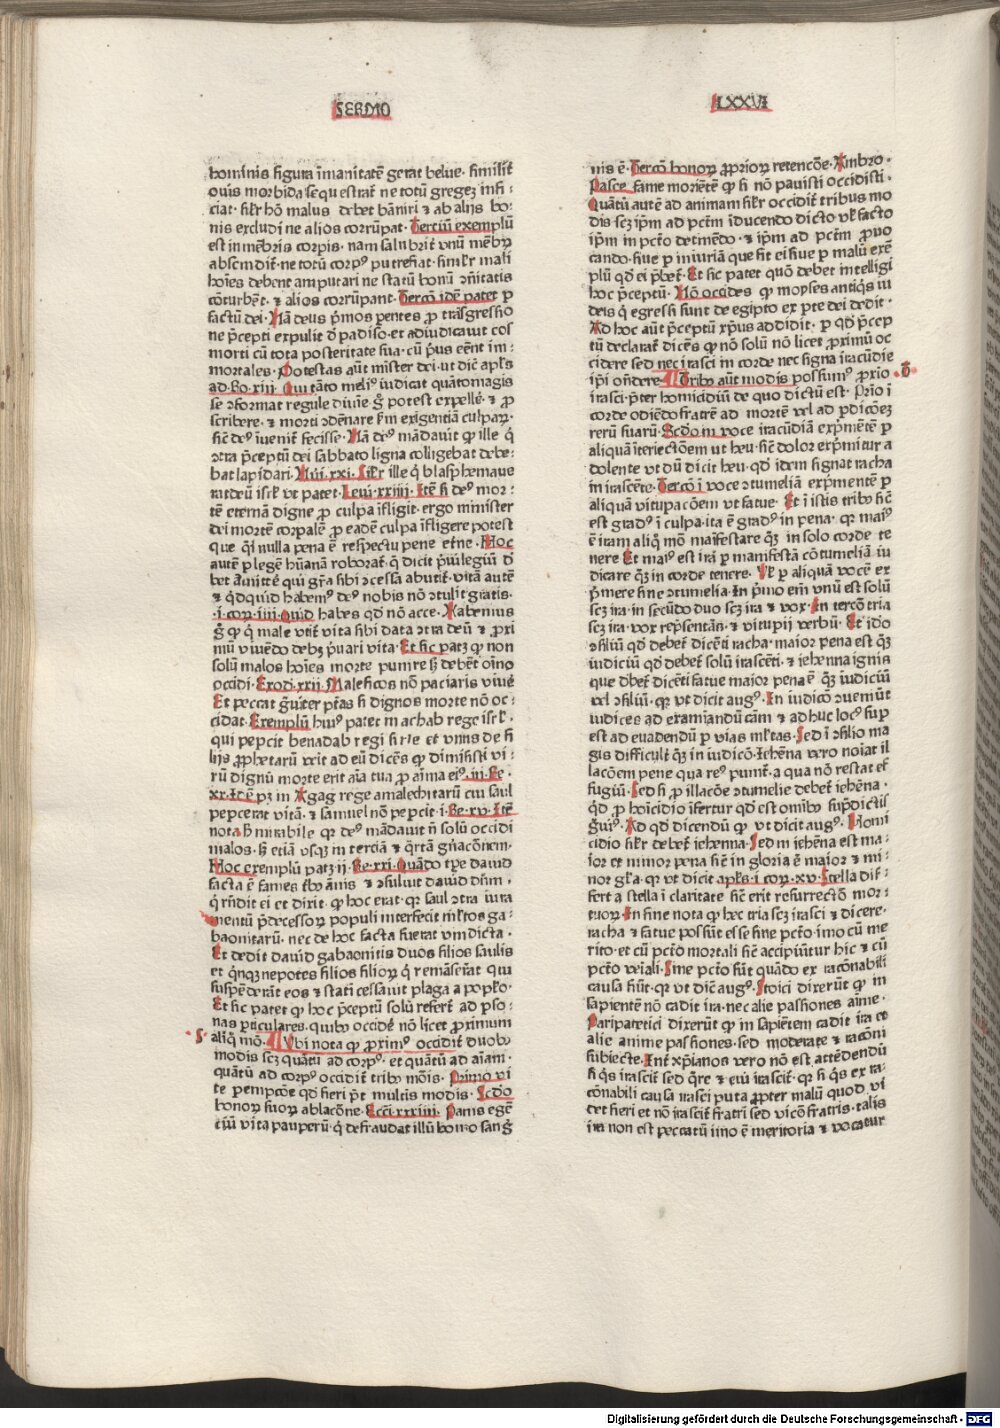 SERMO
LXXVI
hominis figura īmanitatē gerat belue· similit̄
ouis morbida sequestrat̄ ne totū gregeʒ infi⸗
ciat· sil'r hō malus debet bāniri ⁊ ab alijs bo⸗
nis excludi ne alios corrūpat· Terciū exemplū
est in mēbris corpis· nam salubrit̄ vnū mēbꝝ
abscindit̄· ne totū corpꝰ putrefiat· similr̄ mali
hoīes debent amputari ne statū bonū ꝯmītatis
cōturbēt· ⁊ alios corrūpant· Tercō idē patet ꝑ
factū dei· Nā deus pͥmos parentes ꝓ trāsgressio
ne p̄cepti expulit d̓ padiso· et adiudicauit eos
morti cū tota posteritate sua· cū pͥus eēnt im⸗
mortales· Potestas aūt mīster dei· ut dic̄ apl's
ad· Ro· xiii· Qui tāto meliꝰ iudicat quātomagis
se ꝯformat regule diuīe g̊ potest expelle̓· ⁊ ꝓ
scribere· ⁊ morti ꝯdēnare s'm exigentiā culpaꝝ·
sic̄ deꝰ īuenit̄ fecisse· Nā deꝰ mādauit ꝙ ille q̇
ꝯtra p̄ceptū dei sabbato ligna colligebat debe⸗
bat lapidari· Nūi· xxi· Sil'r ille q̇ blasphemaue
rat deū isrl' vt patet· Leui· xxiiii· Itē si deꝰ mor⸗
tē eternā digne ꝓ culpa īfligit· ergo minister
dei mortē corpalē ꝓ eadē culpa īfligere potest
que q̄si nulla pena ē respectu pene et̄ne· Hoc
autē ꝑ legē hūanā roborat̄· q̄ dicit pͥuilegiū d̓
bet amitte̓ qui grā sibi ꝯcessa abutit̄· vitā autē
⁊ qͥdquid habemꝰ deꝰ nobis nō ꝯtulit gratis·
·i· cor· iiii· Quid habes qd' nō acce· Nabenius
g̊ ꝙ q̇ male vtit̄ vita sibi data ꝯtra deū ⁊ ꝓxi
mū viuēdo debʒ pͥuari vita· Et sic patʒ ꝙ non
solū malos hoīes morte punire sʒ debēt oīno
occidi· Exod· xxii· Maleficos nō paciaris viue̓
Et peccat g̊uit̄er pt̄as si dignos morte nō oc⸗
cidat· Exemplū huiꝰ patet in achab rege isrl'·
qui pepcit benadab regi sirie et vnns de fi
lijs ꝓphetarū veit ad eū dicēs ꝙ dimisisti vi⸗
rū dignū morte erit aīa tua ꝓ aīma eiꝰ· iii· Re·
xx· Itē pʒ in Agag rege amalechitarū cui saul
pepcerat vitā· ⁊ samuel nō pepcit· i· Re· xv· Itē
nota ħ mirabile ꝙ deꝰ mādauit n̄ solū occidi
malos· sʒ etiā vsqʒ in terciā ⁊ qͣrtā gn̄acōnem·
Hoc exemplū patʒ ij· Re· xxi· Quādo tp̄e dauid
facta ē fames tͥbꝰ ānis ⁊ ꝯsuluit dauid dn̄m·
q̇ rn̄dit ei et dixit· ꝙ hoc erat· qꝛ saul ꝯtra iura
mentū p̄decessoꝝ populi interfecit ml'tos ga⸗
baonitarū· nec de hoc facta fuerat vindicta·
Et dedit dauid gabaonitis duos filios saulis
et qͥnqʒ nepotes filios filioꝝ q̇ remāserāt qui
suspēderūt eos ⁊ stati cessauit plaga a pop'lo·
Et sic patet ꝙ hoc p̄ceptū solū refert̄ ad pso⸗
nas ꝑticulares· quibꝰ occide̓ nō licet ꝓximum
aliq̊ mō· Vbi nota ꝙ ꝓximꝰ occidit̄ duobꝰ
modis scʒ quātū ad corpꝰ· et quātū ad aīam·
quātū ad corpꝰ occidit̄ tribꝰ mōis· Primo vi
te pempcōe qd' fieri pt̄ multis modis· Scd̄o
bonoꝝ suoꝝ ablacōne· Ecci· xxxiiii· Panis egē
tiū vita pauperū· q̇ defraudat illū homo sanḡ
S
nis ē· Tercō bonoꝝ ꝓprioꝝ retencōe· Ambro·
Pasce fame moriētē ꝙ si nō pauisti occidisti·
Quātū autē ad animam sil'r occidit̄ tribus mo
dis scʒ ip̄m ad pctm̄ īducendo dicto vl' facto
ip̄m in pctō detinēdo· ⁊ ip̄m ad pctm̄ ꝓuo
cando· siue ꝑ iniuriā que fit ei siue ꝑ malū exē
plū qd' ei p̄bet̄· Et sic patet quō debet intelligi
hoc p̄ceptū· Nō occides ꝙ moyses antiqͥs iu
deis q̇ egressi sunt de egipto ex ꝑte dei dedit·
Ad hoc aūt p̄ceptū xp̄us addidit· ꝑ qd' p̄cep
tū declarat̄ dicēs ꝙ nō solū nō licet ꝓximū oc
cidere sed nec irasci in corde nec signa iracūdie
ip̄i on̄dere· Tribꝰ aūt modis possumꝰ ꝓxīo
T
irasci· p̄ter homicidiū de quo dictū est· Prīo ī
corde odiēdo fratrē ad mortē vel ad ꝑdicōeʒ
rerū suarū· Scd̄o in voce iracūdiā expͥmētē ꝑ
aliquā īteriectōem ut heu· sic̄ dolor expͥmitur a
dolente vt dū dicit heu· qd' idem signat racha
in irascēte· Tercō ī voce ꝯtumeliā expͥmentē ꝑ
aliquā vitupacōem vt fatue· Et ī istis tribꝰ sic̄
est gradꝰ ī culpa· ita ē gradꝰ in pena· qꝛ maiꝰ
ē iram aliq̊ mō maīfestare qͣʒ in solo corde te
nere Et maiꝰ est irā ꝑ manifestā cōtumeliā iu
dicare qͣʒ in corde tenere· Vl' ꝑ aliquā vocē ex
pͥmere sine ꝯtumelia· In pͥmo em̄ vnū est solū
scʒ ira· in secūdo duo scʒ ira ⁊ vox· In tercō tria
scʒ ira· vox rep̄sentās· ⁊ vitupij verbū· Et ido
ꝯsiliū qd' debet̄ dicēti racha· maior pena est qͣʒ
iudiciū qd' debet̄ solū irascēti· ⁊ iehenna ignis
que dbet̄ dicēti fatue maior pena ē qͣʒ iudiciū
vel ꝯsiliū· qꝛ vt dicit augꝰ· In iudicō ꝯueniūt
iudices ad examiandū cām ⁊ adhuc locꝰ supͥ
est ad euadendū ꝑ vias ml'tas· Sed ī ꝯsilio ma
gis difficult̄ qͣʒ in iudicō· Iehēna vero noīat il
lacōem pene qua reꝰ punit̄· a qua nō restat ef
fugiū· Sed si ꝓ illacōe ꝯtumelie debet̄ iehēna·
qͥd ꝓ hoīcidio īfertur qd' est omībꝰ supͣdictis
g̊uiꝰ· Ad qd' dicendū ꝙ vt dicit augꝰ· Homi
cidio sil'r debet̄ iehenna· Sed in iehēna est ma⸗
ior et minor pena sic̄ in gloria ē maior ⁊ mi⸗
nor gl'a· qꝛ vt dicit apl's· i· cor· xv· Stella dif⸗
fert a stella ī claritate sic̄ erit resurrectō mor⸗
tuoꝝ· In fine nota ꝙ hec tria scʒ irasci ⁊ dicere·
racha ⁊ fatue possūt esse sine pctō· imo cū me
rito· et cū pctō mortali sic̄ accipiūtur hic ⁊ cū
pctō veīali· Sine pctō fiūt quādo ex racōnabili
causa fiūt· qꝛ vt dic̄ augꝰ· Stoici dixerūt ꝙ in
sapientē nō cadit ira· nec alie passiones aīme·
Paripatetici dixerūt ꝙ in sapiētem cadit ira et
alie anime passiones· sed moderate ⁊ racōni
subiecte· Int̄ xp̄ianos vero nō est attēdendū
si qͥs irascit̄ sed qͣre ⁊ cui irascit̄· qꝛ si qͥs ex ra⸗
cōnabili causa irascit̄ puta ꝓpter malū quod vi
det fieri et nō irascit̄ fratri sed vicō fratris· talis
ira non est peccatū imo ē meritoria ⁊ vocatur
Digitalisierung gefördert durch die Deutsche Forschungsgemeinschaft - DFG